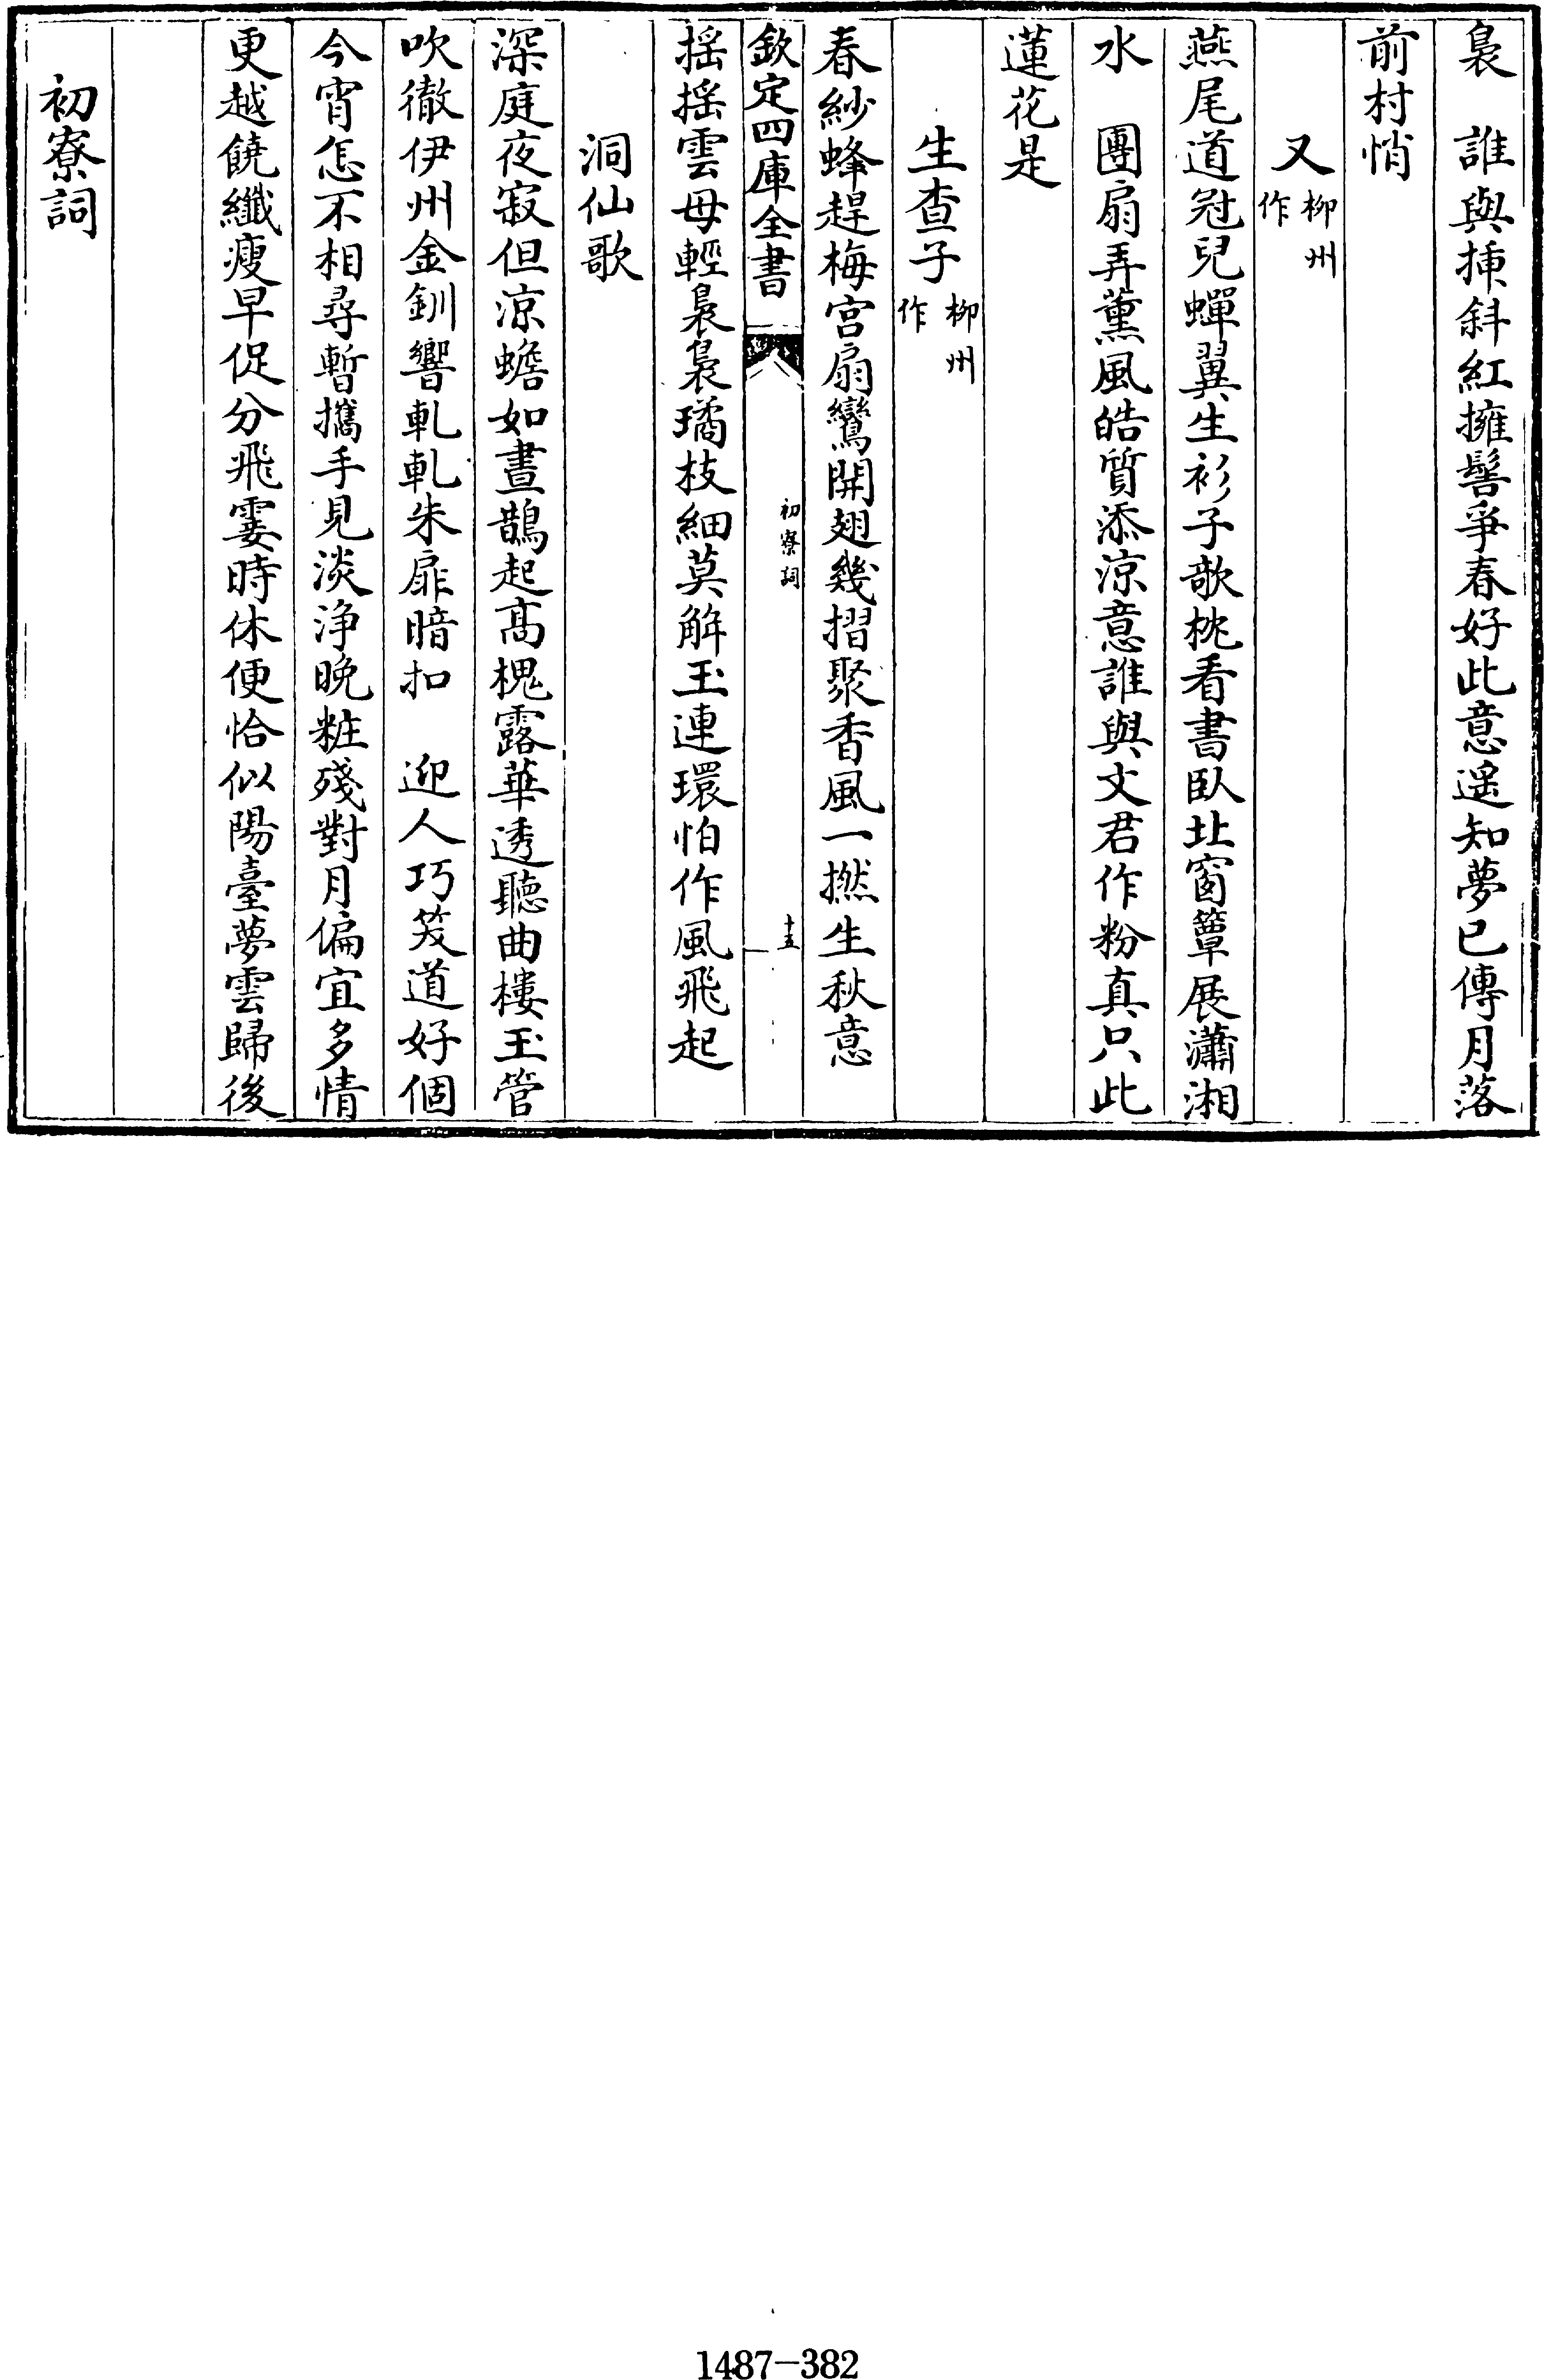 裊　誰與挿斜紅擁髻爭春好此意遥知夢已傳月落
前村悄
又柳州作
燕尾道冠兒蟬翼生衫子欹枕看書臥北窗簟展瀟湘
水　團扇弄薰風皓質添涼意誰與文君作粉真只此
蓮花是
生查子柳州作
春紗蜂趕梅宫扇鸞開翅幾摺聚香風一撚生秋意
欽定四庫全書
初寮詞
十五
揺揺雲母輕裊裊璚枝細莫解玉連環怕作風飛起
洞仙歌
深庭夜寂但涼蟾如晝鵲起髙槐露華透聽曲樓玉管
吹徹伊州金釧響軋軋朱扉暗扣　迎人巧笑道好個
今宵怎不相尋暫攜手見淡浄晚粧殘對月偏宜多情
更越饒纖瘦早促分飛霎時休便恰似陽臺夢雲歸後
初寮詞
1487-382